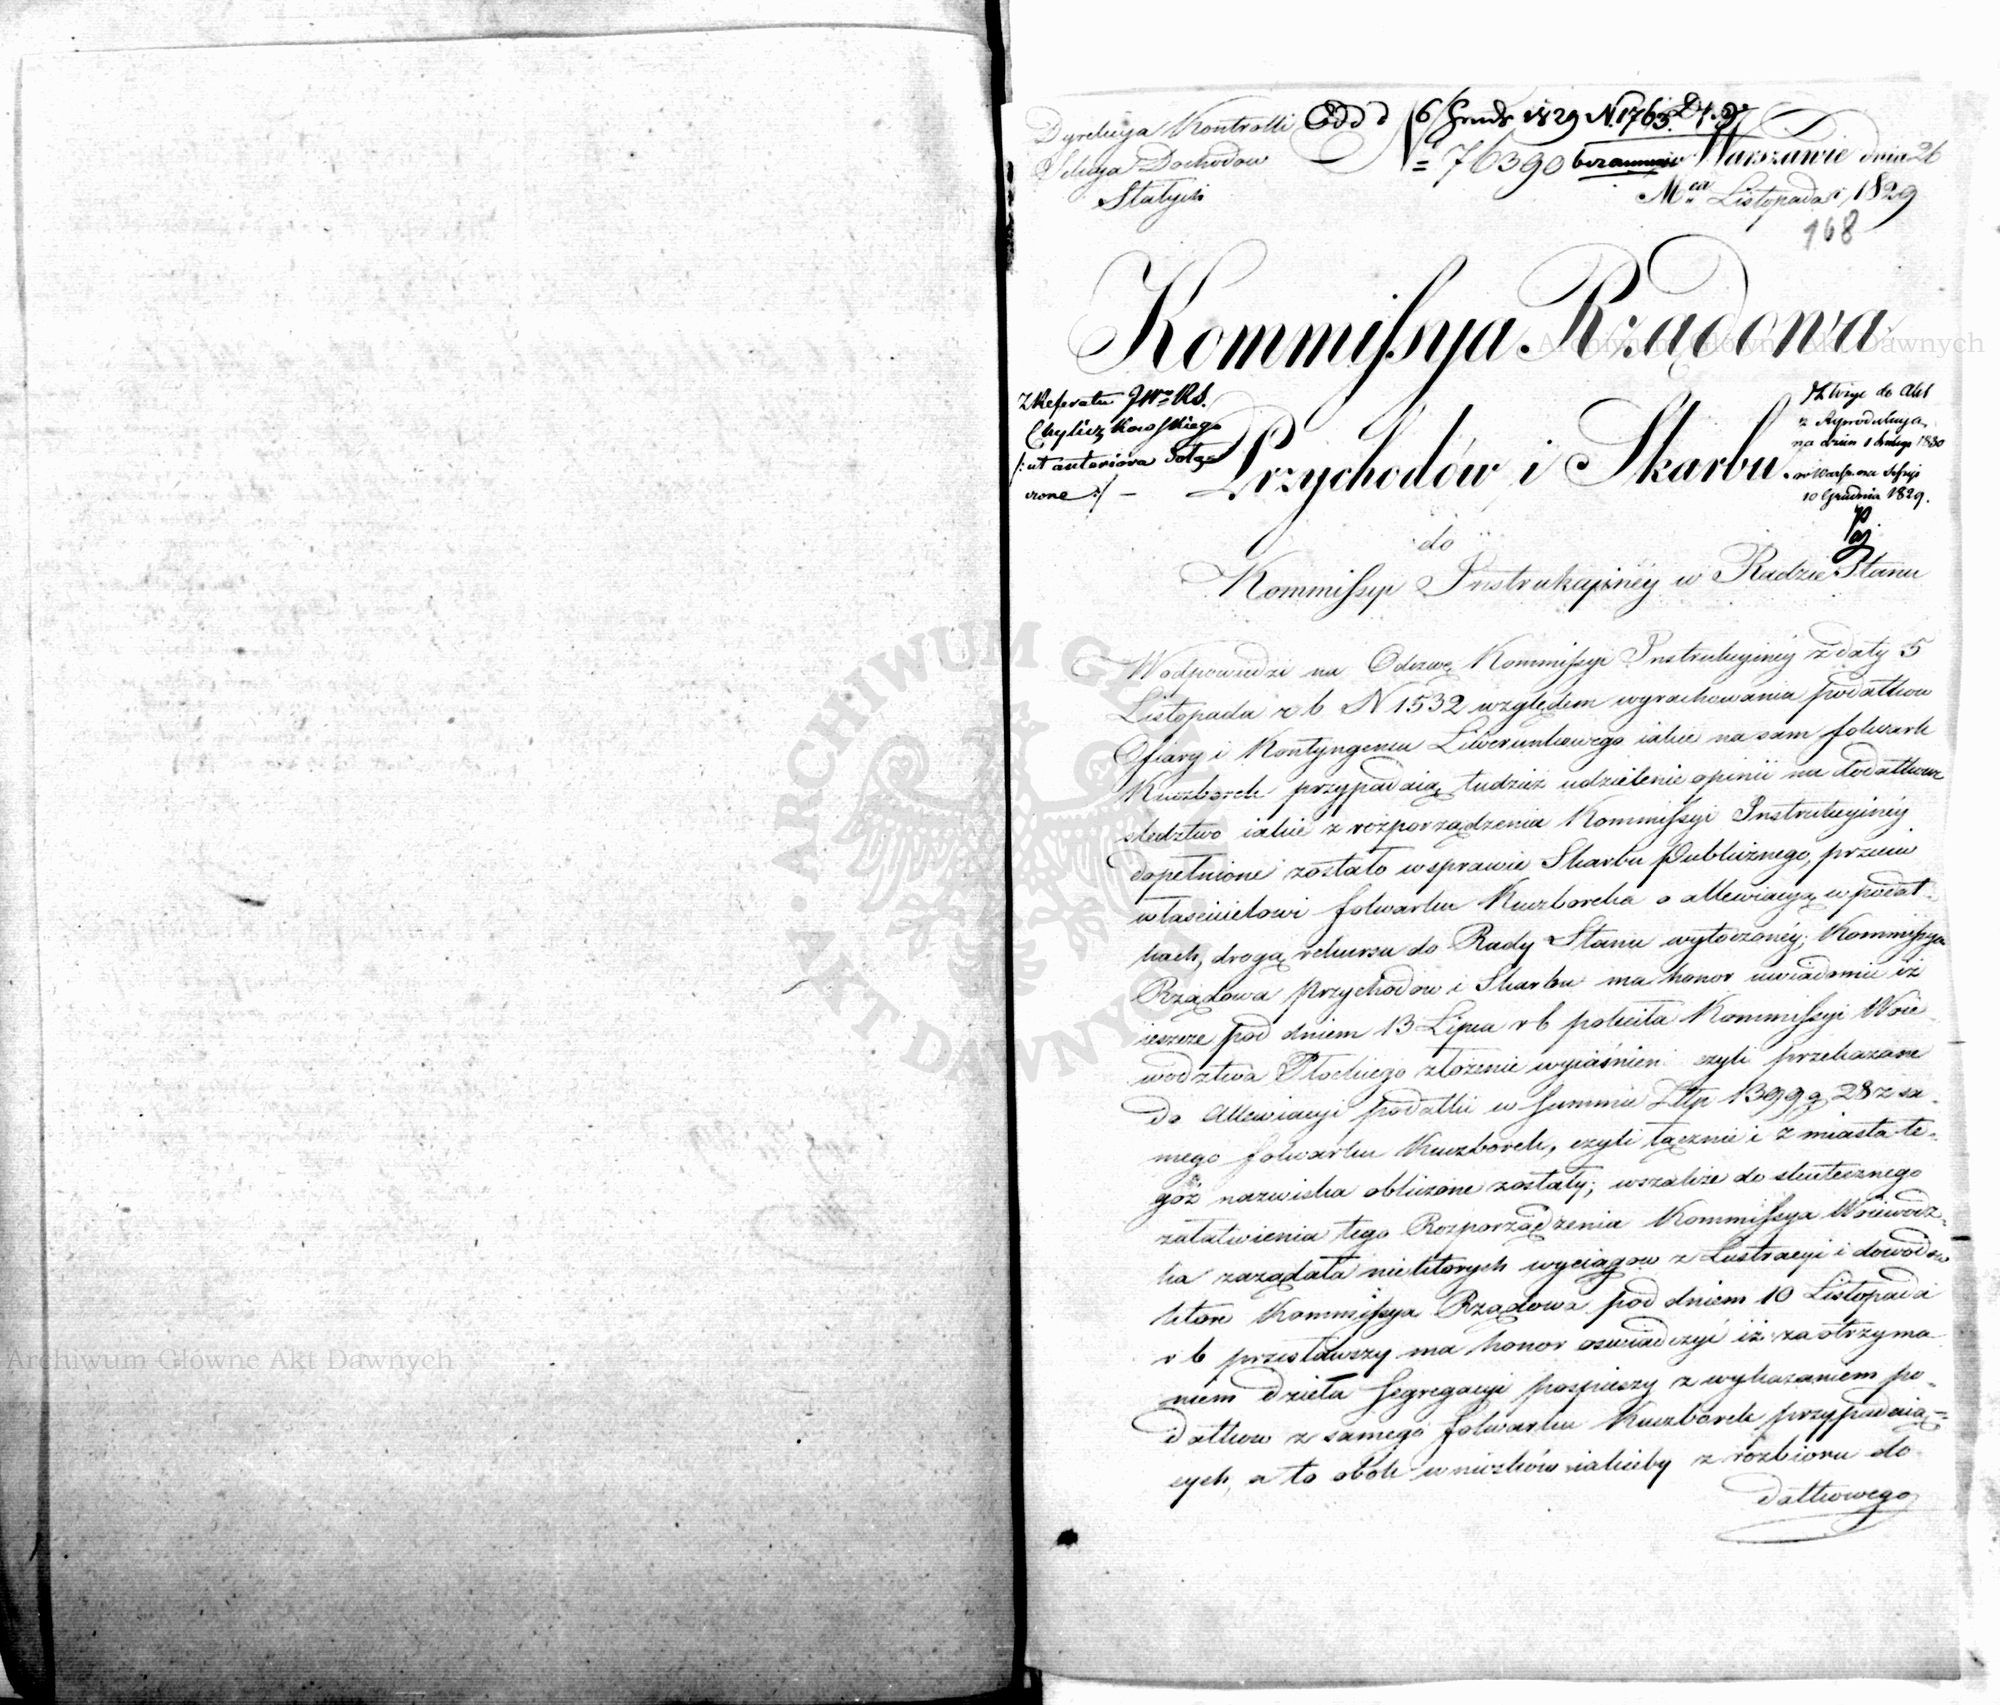 Dyrekcya Kontrolli
Sekcya Dochodów
Stałych
Odd d 6 Grud 1829 N. 1765
N = 76390
w Warszawie dnia 26
Mca Listopada 1829
168
Kommissya Rządowa
Przychodów i Skarbu
Z Referatu JWo RS.
Chyliczkowskiego
/:ut anteriora Dołą=
czone:/ —
do Akt
z Reprodukcyą
na dzień 1 Lutego 1830
w Warsz. na Sessyi
10 Grudnia 1829.
do
Kommissyi Instrukcyinéy w Radzie Stanu
W odpowiedzi na Odezwę Kommissyi Instrukcyinéy z daty 5
Listopada r b N 1532 względem wyrachowania podatków
Ofiary i Kontyngensu Liwerunkowego iakie na sam folwark
Kuczborek przypadaią, tudzież udzielenie opinii na dodatkowe
sledztwo iakie z rozporządzenia Kommissyi Instrukcyinéy
dopełnione zostało w sprawie Skarbu Publicznego, przeciw
właścicielowi folwarku Kuczborka o allewiacyą w podat=
kach, drogą rekursu do Rady Stanu wytoczonéy; Kommissya
Rządowa Przychodów i Skarbu ma honor uwiadomić iż
ieszcze pod dniem 13 Lipca r b poleciła Kommissyi Woie=
wodztwa Płockiego złożenie wyiaśnień czyli przekazane
do Allewiacyi podatki w summie Złtp 1399 g 28 z sa=
mego folwarku Kuczborek, czyli łącznie i z miasta te=
goż nazwiska obliczone zostały; wszakże do skutecznego
załatwienia tego Rozporządzenia Kommissya Woiewodz=
ka zażądała niektórych wyciągów z Lustracyi i dowodów
które Kommissya Rządowa pod dniem 10 Listopada
r b przesławszy ma honor oswiadczyć iż za otrzyma=
niem dzieła segregacyi pospieszy z wykazaniem po=
datków z samego folwarku Kuczborek przypadaią=
cych, a to obok wniosków iakieby z rozbioru do=
datkowego
Archiwum Główne Akt Dawnych
Archiwum Główne Akt Dawnych
ARCHIWUM GŁÓWNE AKT DAWNYCH